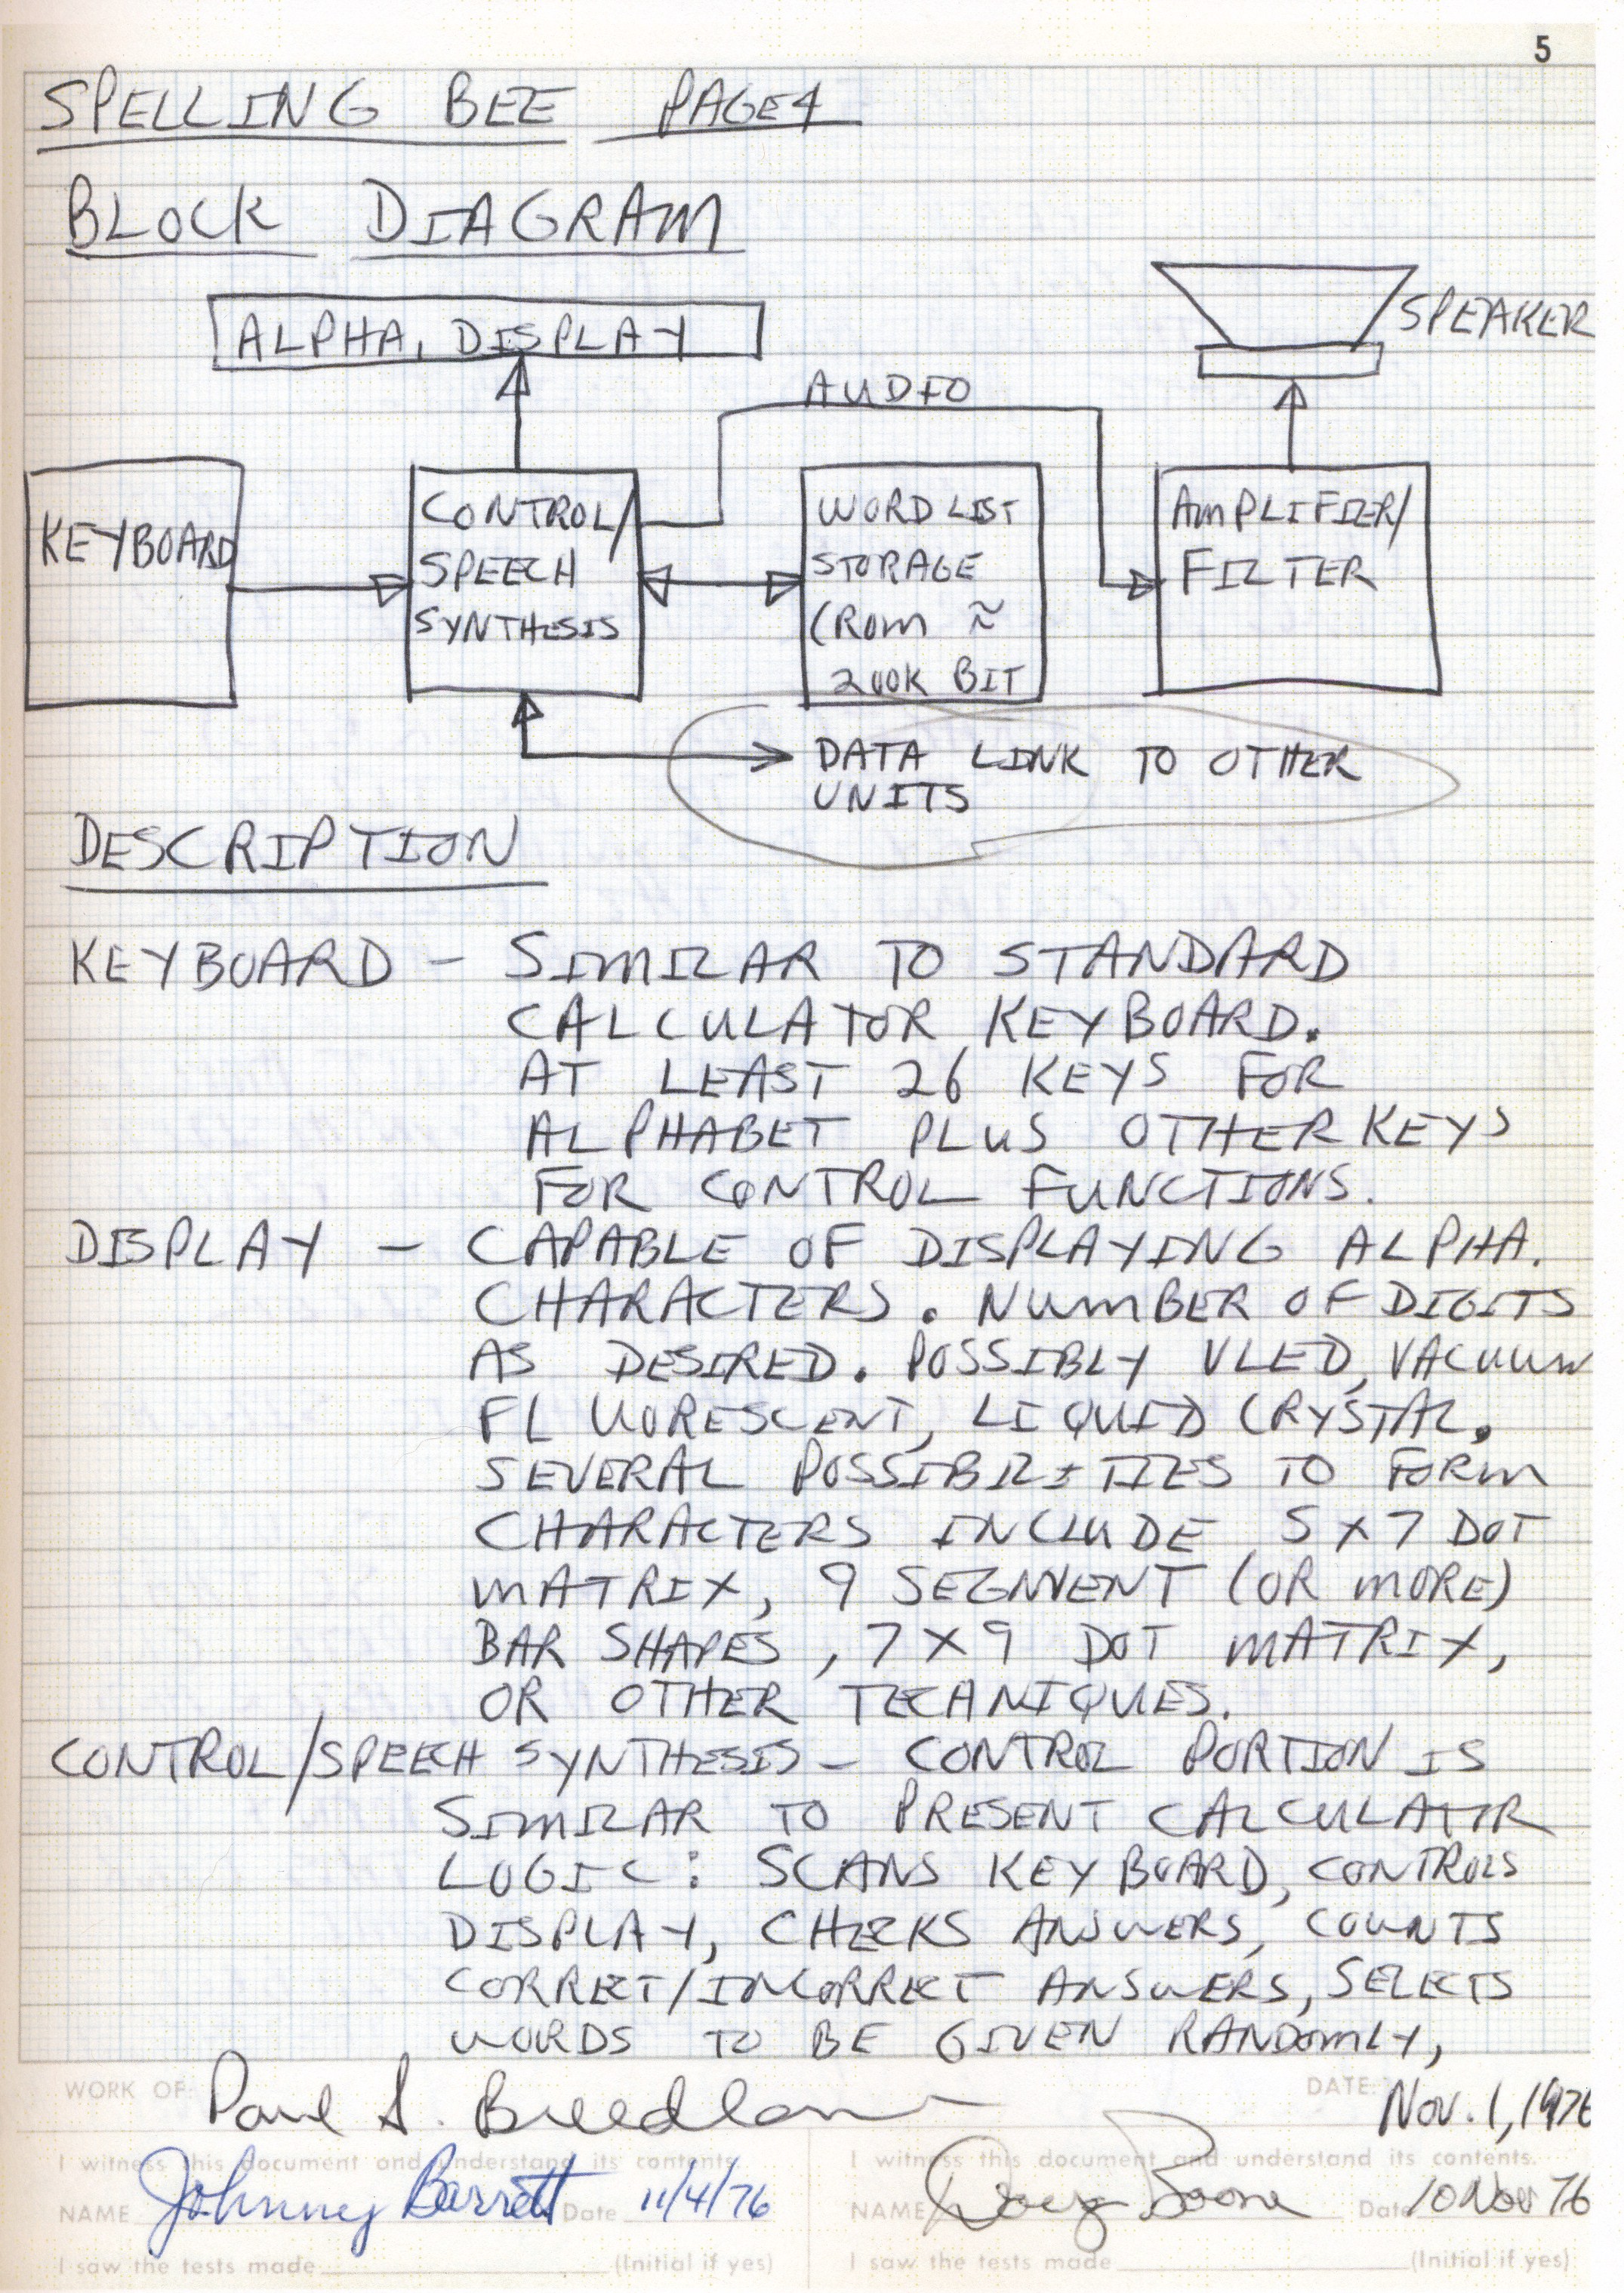 5
SPELLING BEE PAGE 4
BLOCK DIAGRAM
ALPHA. DISPLAY
SPEAKER
AUDIO
KEYBOARD
CONTROL/
SPEECH
SYNTHESIS
WORD LIST
STORAGE
(ROM ≈
200K BIT
AMPLIFIER/
FILTER
DATA LINK TO OTHER
UNITS
DESCRIPTION
KEYBOARD - SIMILAR TO STANDARD
CALCULATOR KEYBOARD.
AT LEAST 26 KEYS FOR
ALPHABET PLUS OTHER KEYS
FOR CONTROL FUNCTIONS.
DISPLAY - CAPABLE OF DISPLAYING ALPHA.
CHARACTERS. NUMBER OF DIGITS
AS DESIRED. POSSIBLY VLED, VACUUM
FLUORESCENT, LIQUID CRYSTAL.
SEVERAL POSSIBILITIES TO FORM
CHARACTERS INCLUDE 5X7 DOT
MATRIX, 9 SEGMENT (OR MORE)
BAR SHAPES, 7X9 DOT MATRIX,
OR OTHER TECHNIQUES.
CONTROL/SPEECH SYNTHESIS - CONTROL PORTION IS
SIMILAR TO PRESENT CALCULATOR
LOGIC: SCANS KEYBOARD, CONTROLS
DISPLAY, CHECKS ANSWERS, COUNTS
CORRECT/INCORRECT ANSWERS, SELECTS
WORDS TO BE GIVEN RANDOMLY,
WORK OF: Paul S. Breedlove DATE: Nov. 1, 1976
I witness this document and understand its contents. I witness this document and understand its contents.
NAME Johnny Barrett Date 11/4/76 NAME Doug Boone Date 10 Nov 76
I saw the tests made (Initial if yes) I saw the tests made (Initial if yes)